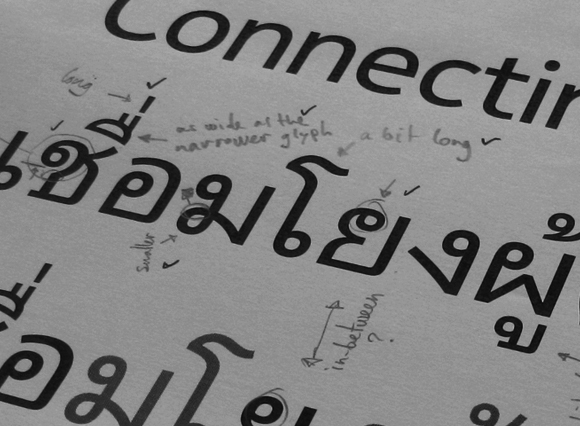 Connectin
long
as wide as the
narrower glyph
a bit long
เชื่อมโยงผู้
smaller
in-between
?
อมโย